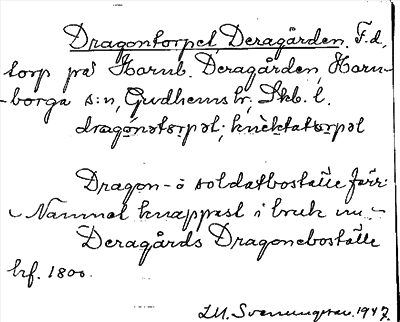 Dragontorpet, Deragården. F.d.
torp på Hornb. Deragården, Horn-
-borga s:n, Gudhems hr, Skb. l.
dragónstǫrpət; knèktatǫrpət
Dragon- o soldatboställe förr.
- Namnet knappast i bruk nu. -
Deragårds Dragoneboställe
hrf. 1800.
J.M. Svenningsson. 1947.